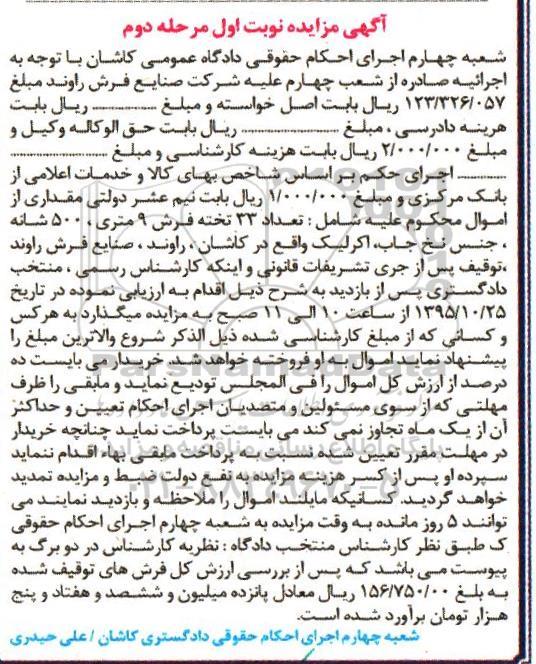 آگهی مزایده نوبت اول مرحله دوم
شعبه چهارم اجرای احکام حقوقی دادگاه عمومی کاشان با توجه به
اجرائیه صادره از شعب چهارم علیه شرکت صنایع فرش راوند مبلغ
۱۲۳/۳۲۶/۰۵۷ ریال بابت اصل خواسته و مبلغ ................ ریال بابت
هزینه دادرسی ، مبلغ ........................ ریال بابت حق الوکاله وکیل و
مبلغ ۲/۰۰۰/۰۰۰ ریال بابت هزینه کارشناسی و مبلغ ........................
............ اجرای حکم بر اساس شاخص بهای کالا و خدمات اعلامی از
بانک مرکزی و مبلغ ۱/۰۰۰/۰۰۰ ریال بابت نیم عشر دولتی مقداری از
اموال محکوم علیه شامل : تعداد ۳۳ تخته فرش ۹ متری ، ۵۰۰ شانه
، جنس نخ جاب، اکرلیک واقع در کاشان ، راوند ، صنایع فرش راوند
،توقیف پس از جری تشریفات قانونی و اینکه کارشناس رسمی ، منتخب
دادگستری پس از بازدید به شرح ذیل اقدام به ارزیابی نموده در تاریخ
۱۳۹۵/۱۰/۲۵ از ساعت ۱۰ الی ۱۱ صبح به مزایده میگذارد به هرکس
و کسانی که از مبلغ کارشناسی شده ذیل الذکر شروع والاترین مبلغ را
پیشنهاد نماید اموال به او فروخته خواهد شد. خریدار می بایست ده
درصد از ارزش کل اموال را فی المجلس تودیع نماید و مابقی را ظرف
مهلتی که از سوی مسئولین و متصدیان اجرای احکام تعیین و حداکثر
آن از یک ماه تجاوز نمی کند می بایست پرداخت نماید چنانچه خریدار
در مهلت مقرر تعیین شده نسبت به پرداخت مابقی بهاء اقدام ننماید
سپرده او پس از کسر هزینه مزایده به نفع دولت ضبط و مزایده تمدید
خواهد گردید. کسانیکه مایلند اموال را ملاحظه و بازدید نمایند می
توانند ۵ روز مانده به وقت مزایده به شعبه چهارم اجرای احکام حقوقی
ک طبق نظر کارشناس منتخب دادگاه : نظریه کارشناس در دو برگ به
پیوست می باشد که پس از بررسی ارزش کل فرش های توقیف شده
به بلغ ۱۵۶/۷۵۰/۰۰ ریال معادل پانزده میلیون و ششصد و هفتاد و پنج
هزار تومان برآورد شده است.
شعبه چهارم اجرای احکام حقوقی دادگستری کاشان / علی حیدری
ParsNamadData
پایگاه اطلاع رسانی مناقصه و مزایده